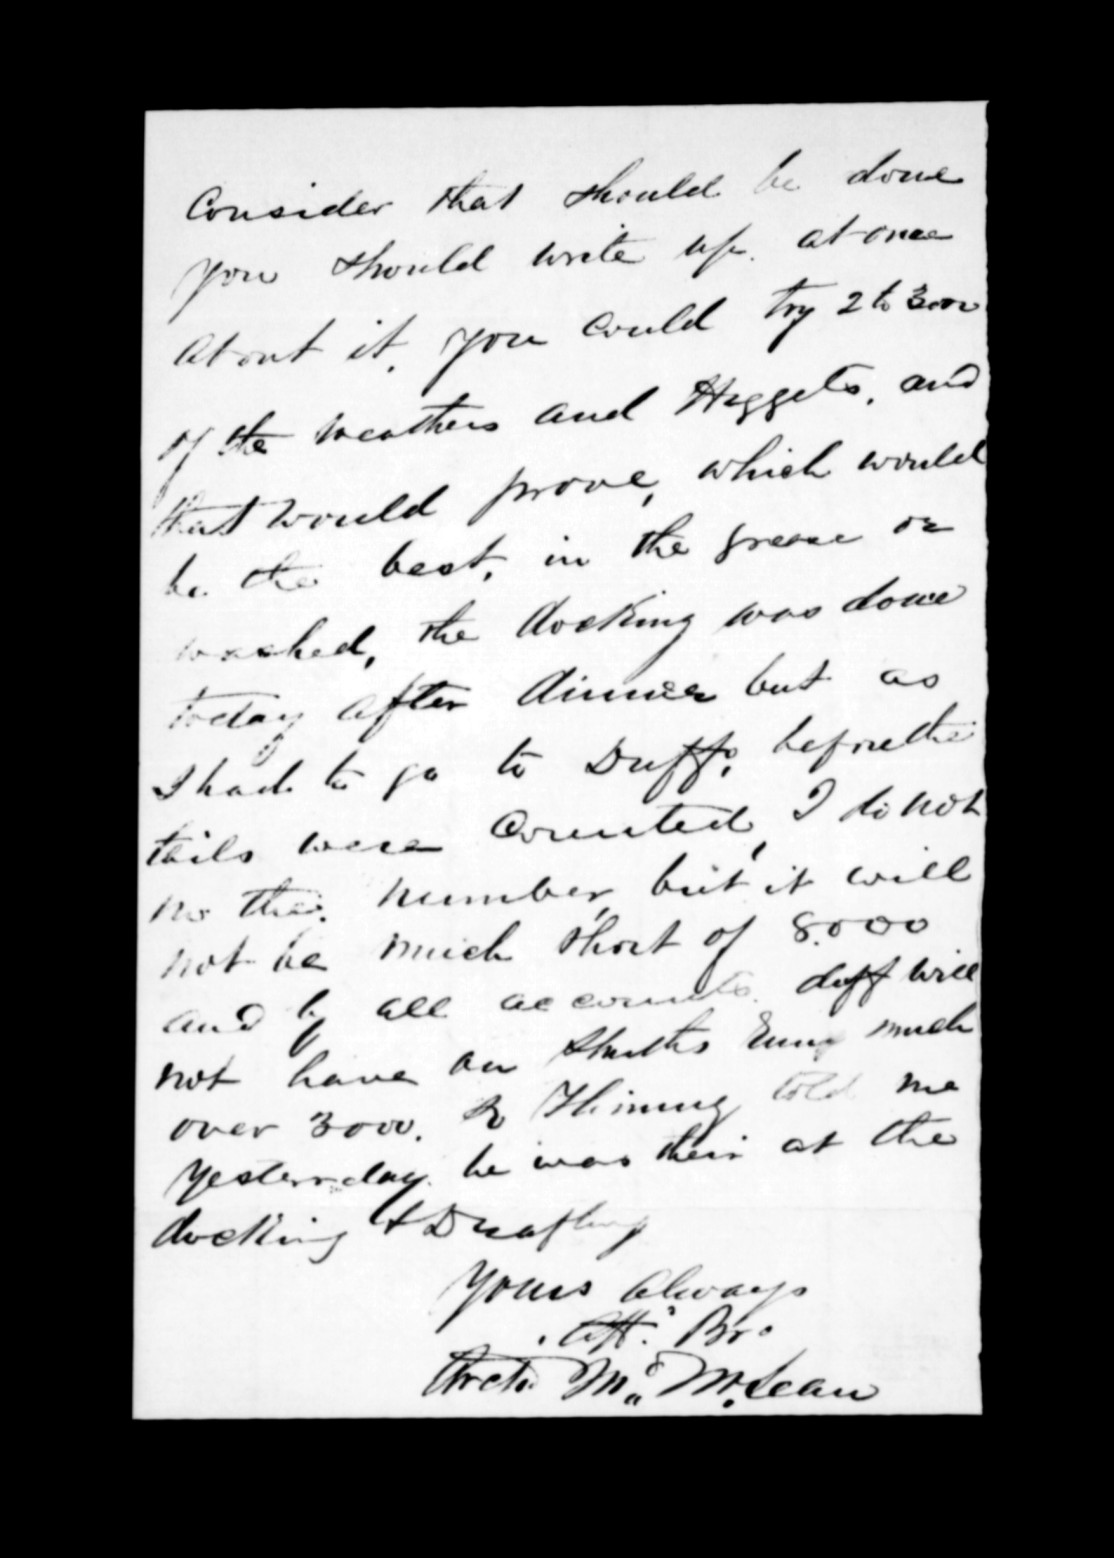 Consider that should be done
you should write up. at once
about it. you could try 2 to 3000
of the weathers and Heggets, and
that would prove, which would
be the best, in the grease or
washed, the docking was done
today after dinner but as
I had to go to Duffs, before the
tails were Counted, I do not
no the number, but it will
not be much short of 8.000
and by all accounts. duff will
not have on Smiths Runs much
over 3000. told me
yesterday. he was their at the
docking & Drafting
Yours always
Afft. Bro
Archd. McLean